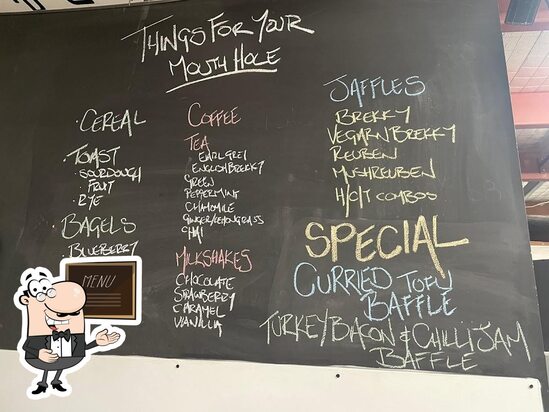 THINGS FOR YOUR
MOUTH HOLE
· CEREAL
· TOAST
- SOURDOUGH
- FRUIT
- RYE
· BAGELS
BLUEBERRY
COFFEE
TEA
EARL GREY
ENGLISH BREKKY
GREEN
PEPPERMINT
CHAMOMILE
GINGER/LEMONGRASS
CHAI
MILKSHAKES
CHOCOLATE
STRAWBERRY
CARAMEL
VANILLA
JAFFLES
BREKKY
VEGARN BREKKY
REUBEN
MUSHREUBEN
H/C/T COMBOS
SPECIAL
CURRIED TOFU
BAFFLE
TURKEY BACON & CHILLI JAM
BAFFLE
MENU